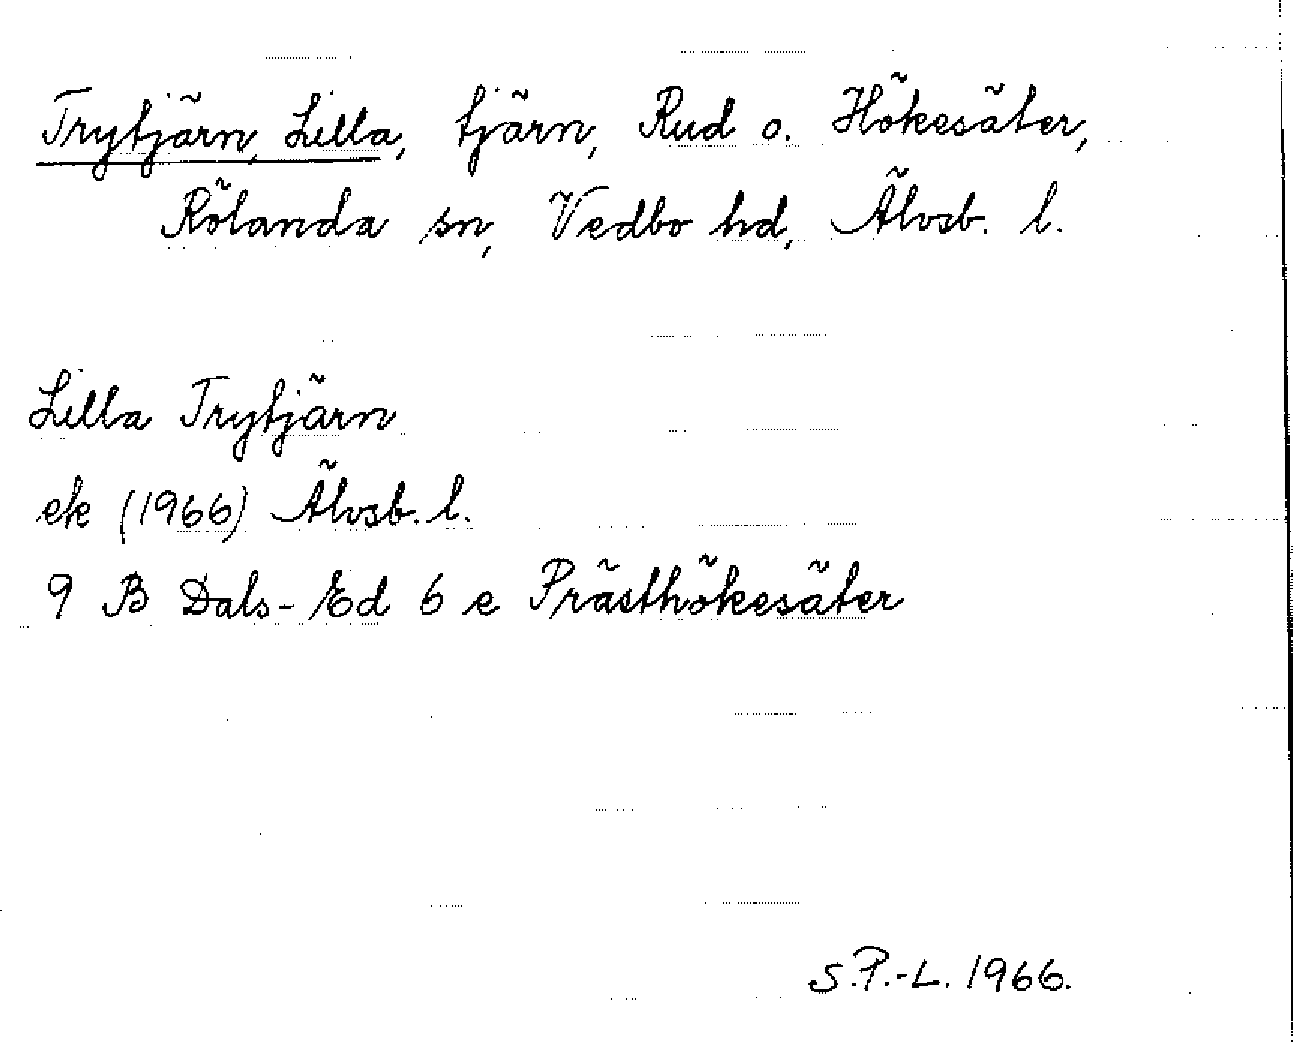 Trytjärn, Lilla, tjärn, Rud o. Hökesäter,
Rölanda sn, Vedbo hd, Älvsb. l.
Lilla Trytjärn
ek (1966) Älvsb. l.
9 B Dals-Ed 6 e Prästhökesäter
S.P.-L. 1966.